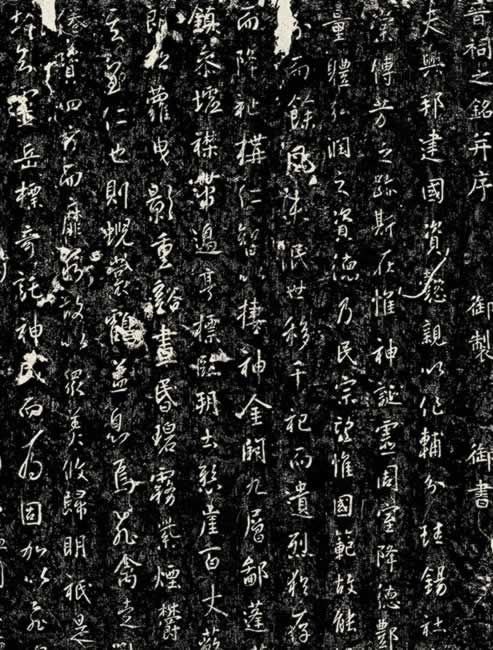 晉祠之銘并序 御製 御書
夫興邦建國資懿親以作輔分珪錫社
棠傳芳之跡斯在惟神誕靈周室降德酆
量體弘潤之資德乃民宗望惟國範故能
分而餘風未泯世移千祀而遺烈猶存
而降祉構仁智以棲神金闕九層鄙蓬
鎮參墟襟帶邊亭標臨朔土懸崖百丈蔽
朗松蘿曳影重谿晝昏碧霧紫煙鬱
其至仁也則蜺裳鶴蓋息焉飛禽走
倦資四方而靡窮故以眾美攸歸明祇是
知靈岳標奇託神威而為固加以飛